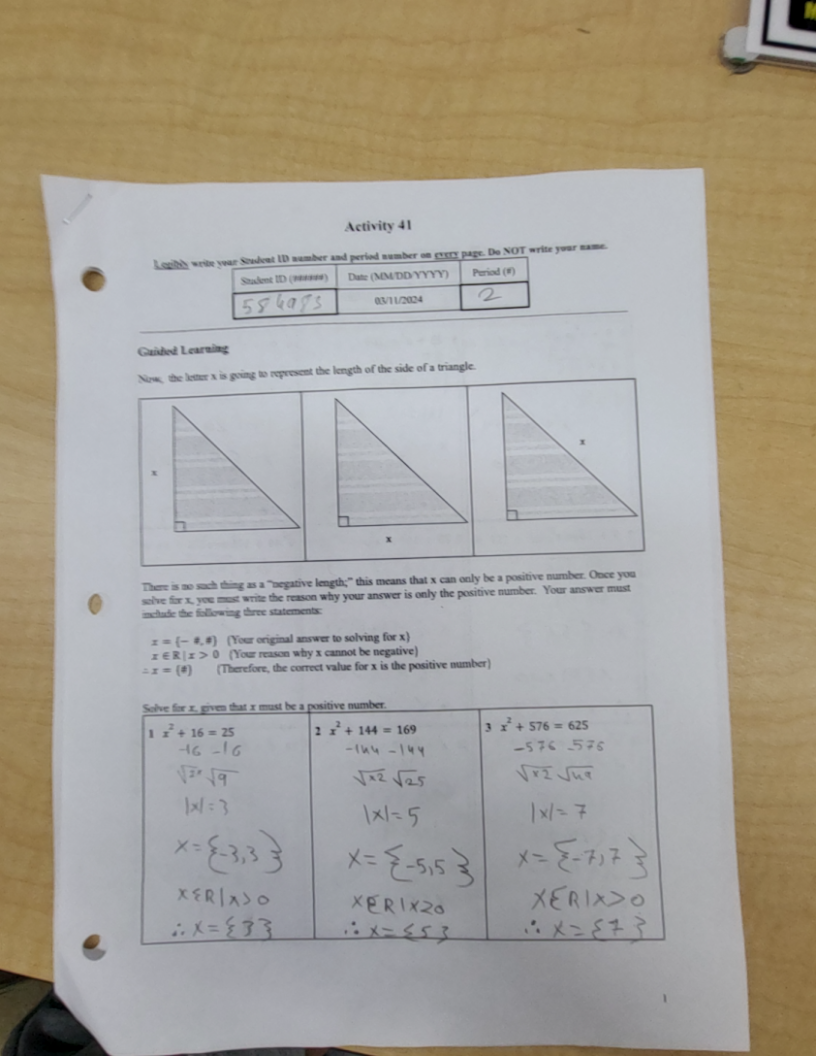 Activity 41
Legibly write your Student ID number and period number on every page. Do NOT write your name.
Student ID (######) Date (MM/DD/YYYY) Period (#)
03/11/2024 2
Guided Learning
Now, the letter x is going to represent the length of the side of a triangle.
x
x
x
There is no such thing as a "negative length;" this means that x can only be a positive number. Once you
solve for x, you must write the reason why your answer is only the positive number. Your answer must
include the following three statements:
x = {− #, #} (Your original answer to solving for x)
x ∈ ℝ | x > 0 (Your reason why x cannot be negative)
∴ x = {#} (Therefore, the correct value for x is the positive number)
Solve for x, given that x must be a positive number.
1 x² + 16 = 25
-16 -16
√x2 √9
|x|=3
x={-3,3}
x∈R|x>0
∴ x={3}
2 x² + 144 = 169
-144 -144
√x2 √25
|x|=5
x={-5,5}
x∈R|x>0
∴ x={5}
3 x² + 576 = 625
-576 -576
√x2 √49
|x|=7
x={-7,7}
x∈R|x>0
∴ x={7}
1